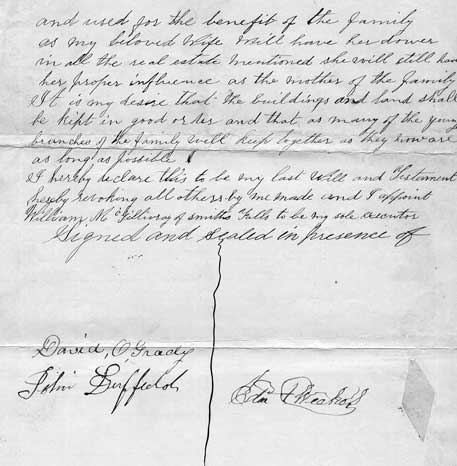 and used for the benefit of the family
as my beloved Wife Will have her dower
in all the real estate mentioned she will still have
her proper influence as the mother of the family
It is my desire that the buildings and land shall
be kept in good order and that as many of the young
branches of the family will keep together as they now are
as long as possible
I hereby declare this to be my last Will and Testament
hereby revoking all others by me made and I appoint
William McGillivray of smiths Falls to be my sole executor
Signed and Sealed in presence of
David, O'Grady
John